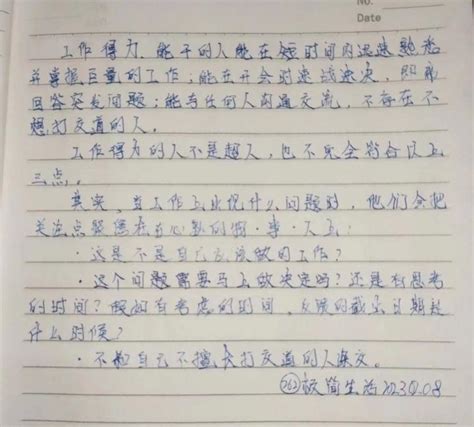 No.
Date
工作得力、能干的人能在短时间内迅速熟悉
并掌握巨量的工作；能在开会时速战速决，即席
回答突发问题；能与任何人沟通交流，不存在不
想打交道的人。
工作得力的人不是超人，也不见会符合以上
三点。
其实，当工作上出现什么问题时，他们会把
关注点放在 的物·事·人上：
·这是不是自己应该做的工作？
·这个问题需要马上做决定吗？还是有思考
的时间？假如有考虑的时间，反馈的截止日期是
什么时候？
·不和自己不擅长打交道的人深交。
(262)极简生活 2023.9.08